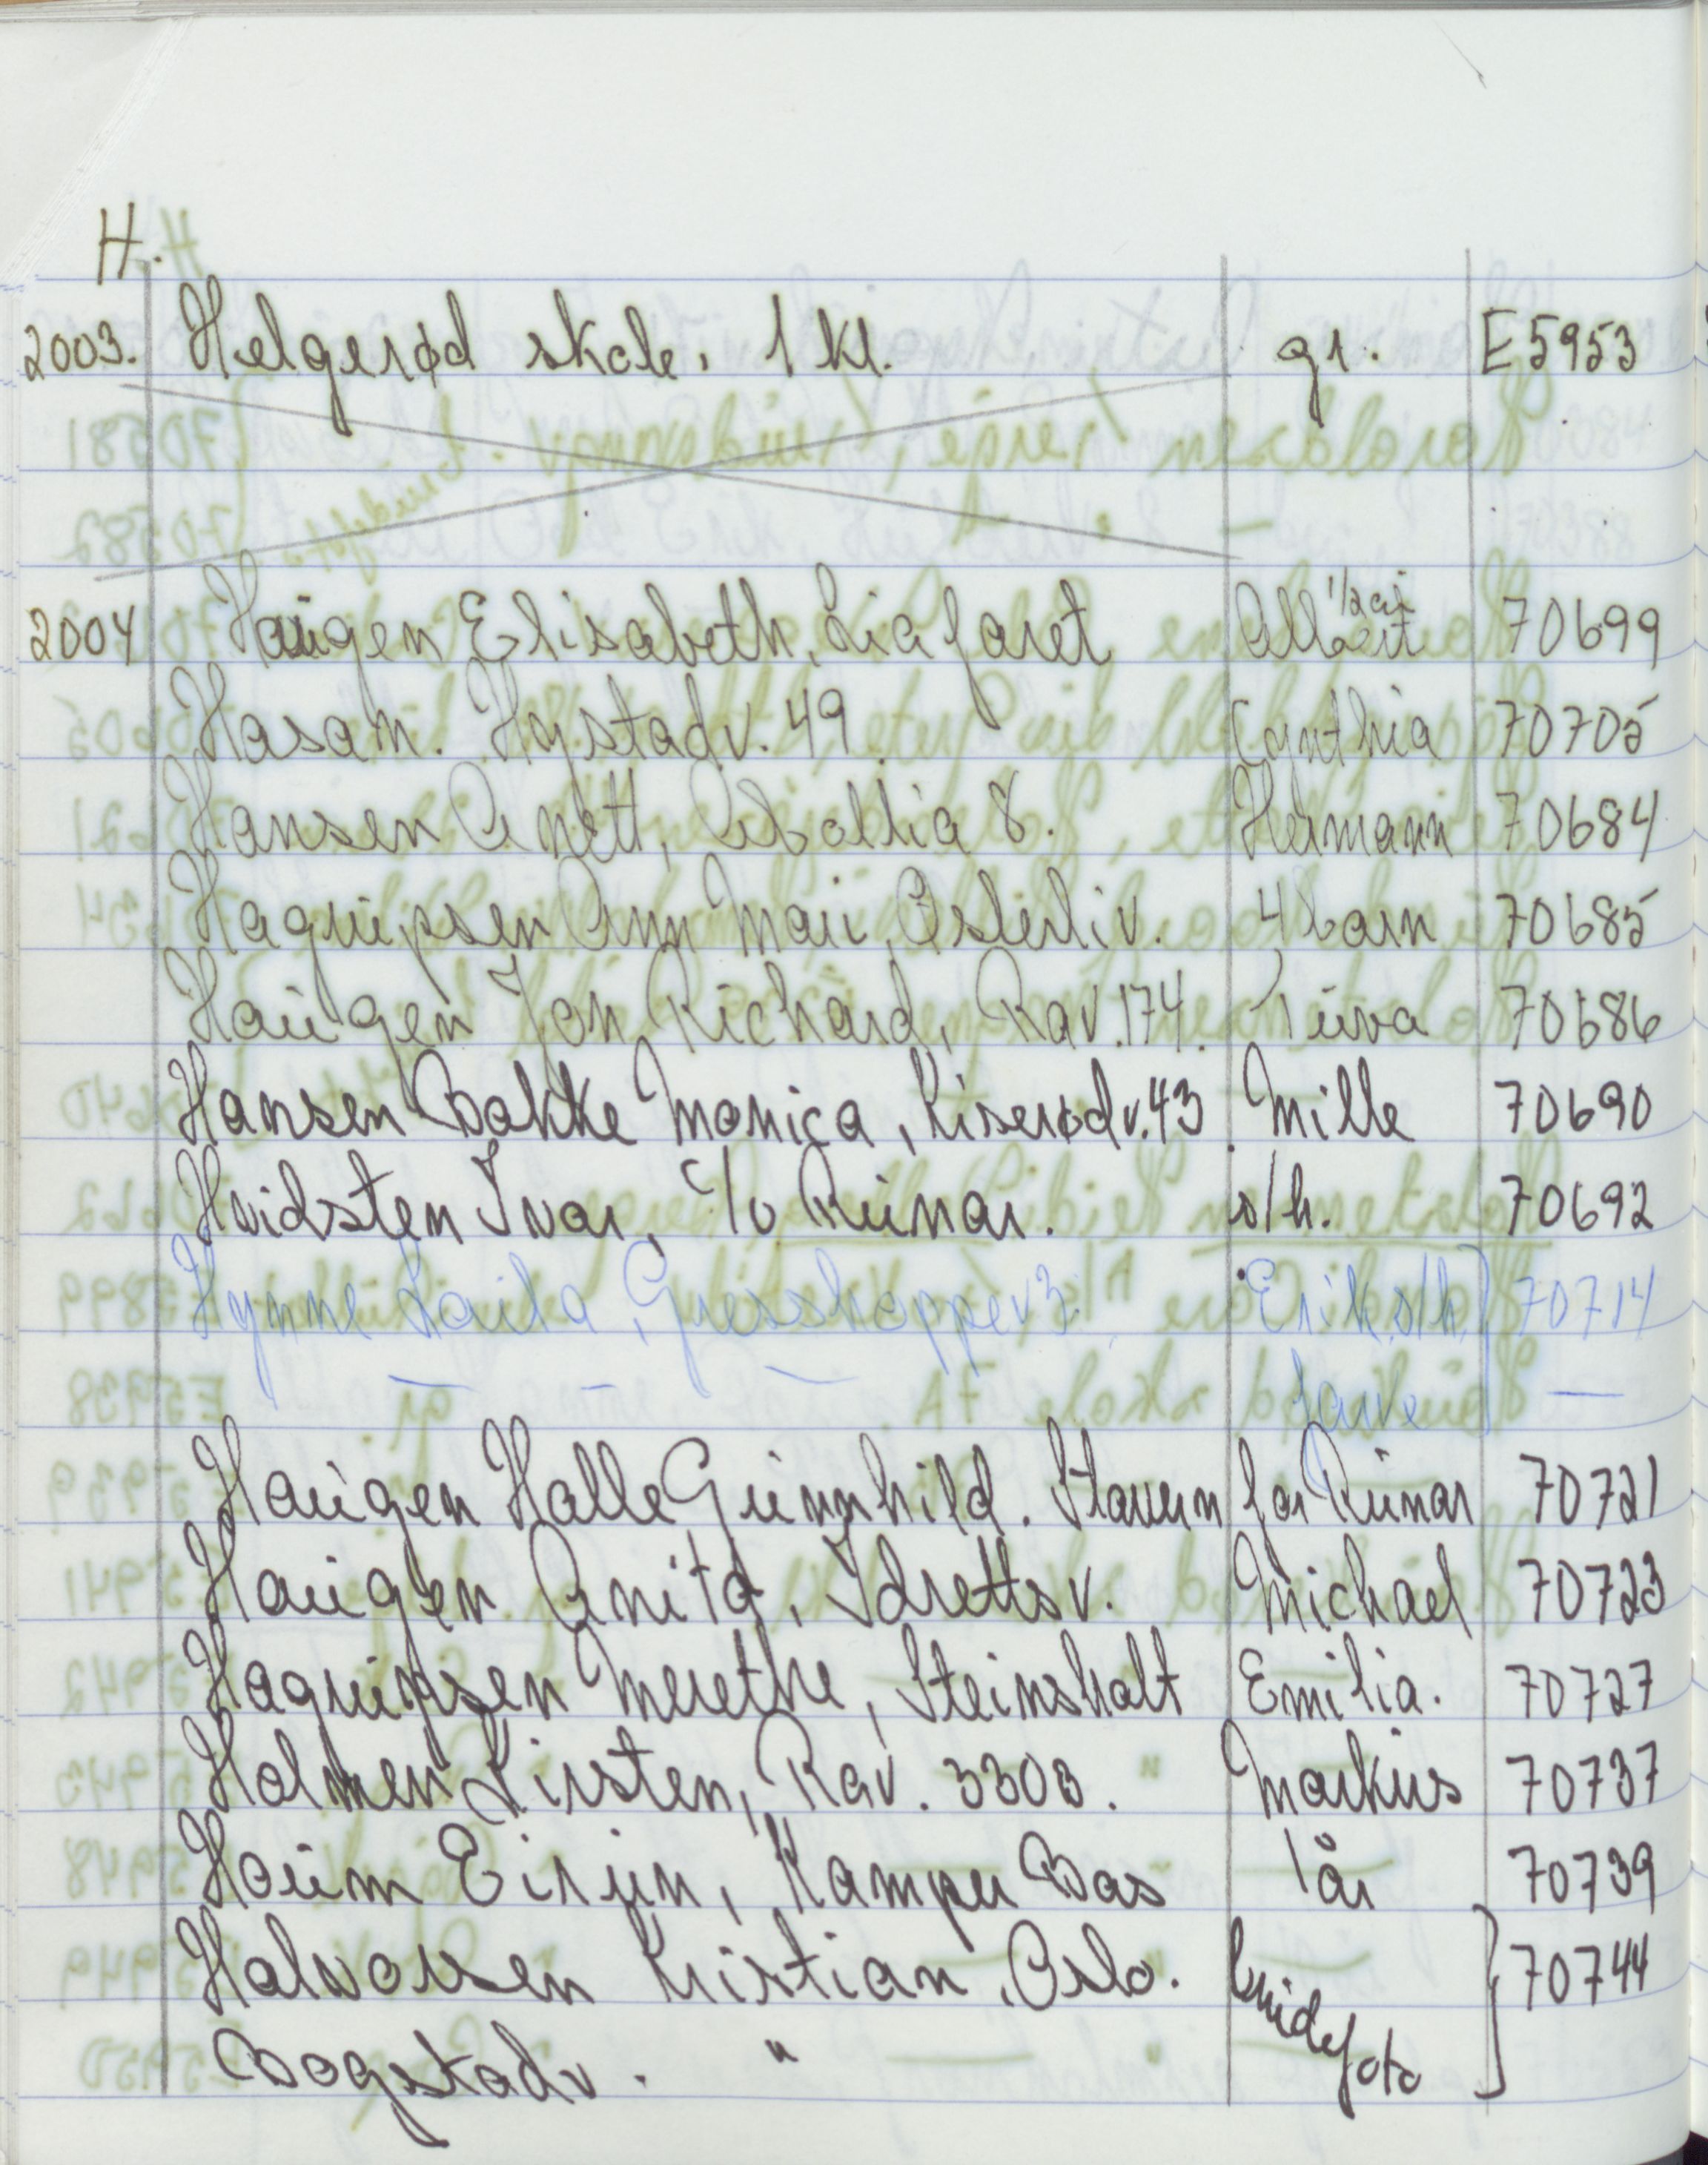 H.
2003. Helgerød skole. 1 kl. gr. E5953
2004 Haugen Elisabeth, Liafaret Albert 1/2 år 70699
Hasan. Hystadv. 49 Cynthia 70705
Hansen Anett, 8. Hermann 70684
Hagnipsen Ann Mari, Østerliv. 4 barn 70685
Haugen Jon Richard, Rav. 174. Tuva 70686
Hansen Bakke Monica, Riserødv. 43 Mille 70690
Hvidsten Ivar, c/o Runar. s/h. 70692
Hynne Laila, Gresshoppev 3. Erik s/h. } 70714
— — — farve —
Haugen Halle Gunnhild. Stavern far Runar 70721
Haugen Anita, Idrettsv. Michael 70723
Merethe, Steinsholt Emilia. 70727
Holmen Kirsten, Rav. 330B. " Markus 70737
Haum Eirun, Kamper Bas 1 år 70739
Halvorsen Kristian, Oslo. brudefoto } 70744
Bogstadv. "